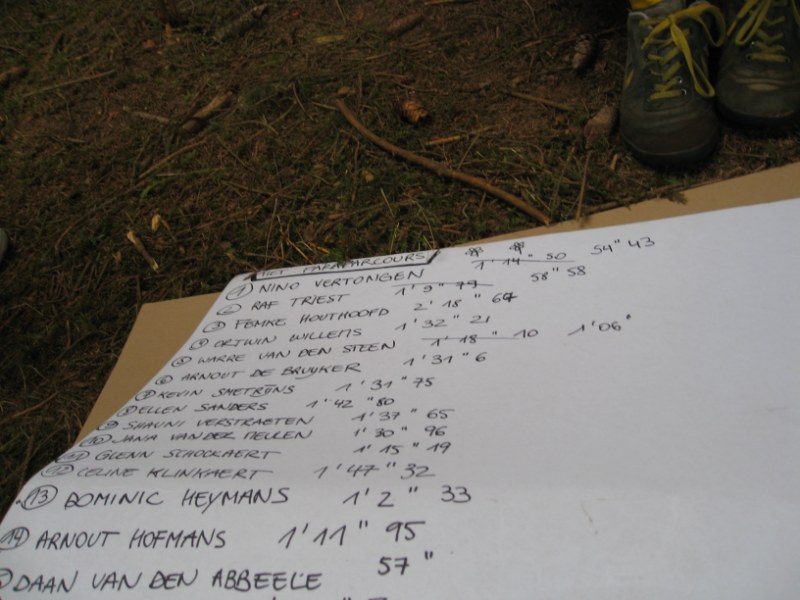 HET PARAPARCOURS
① NINO VERTONGEN 1'14" 50 54" 43
② RAF TRIEST 1'9" 79 58" 58
③ FEMKE HOUTHOOFD 2'18" 64
④ ORTWIN WILLEMS 1'32" 21
⑤ WARRE VAN DEN STEEN 1'18" 10 1'06"
⑥ ARNOUT DE BRUYKER 1'31" 6
⑦ KEVIN SMETRIJNS 1'31" 75
⑧ ELLEN SANDERS 1'42" 80
⑨ SHAUNI VERSTRAETEN 1'37" 65
⑩ JANA VANDER MELLEN 1'30" 96
⑪ GLENN SCHOCKAERT 1'15" 19
⑫ CELINE KLINKAERT 1'47" 32
⑬ DOMINIC HEYMANS 1'2" 33
⑭ ARNOUT HOFMANS 1'11" 95
DAAN VAN DEN ABBEELE 57"